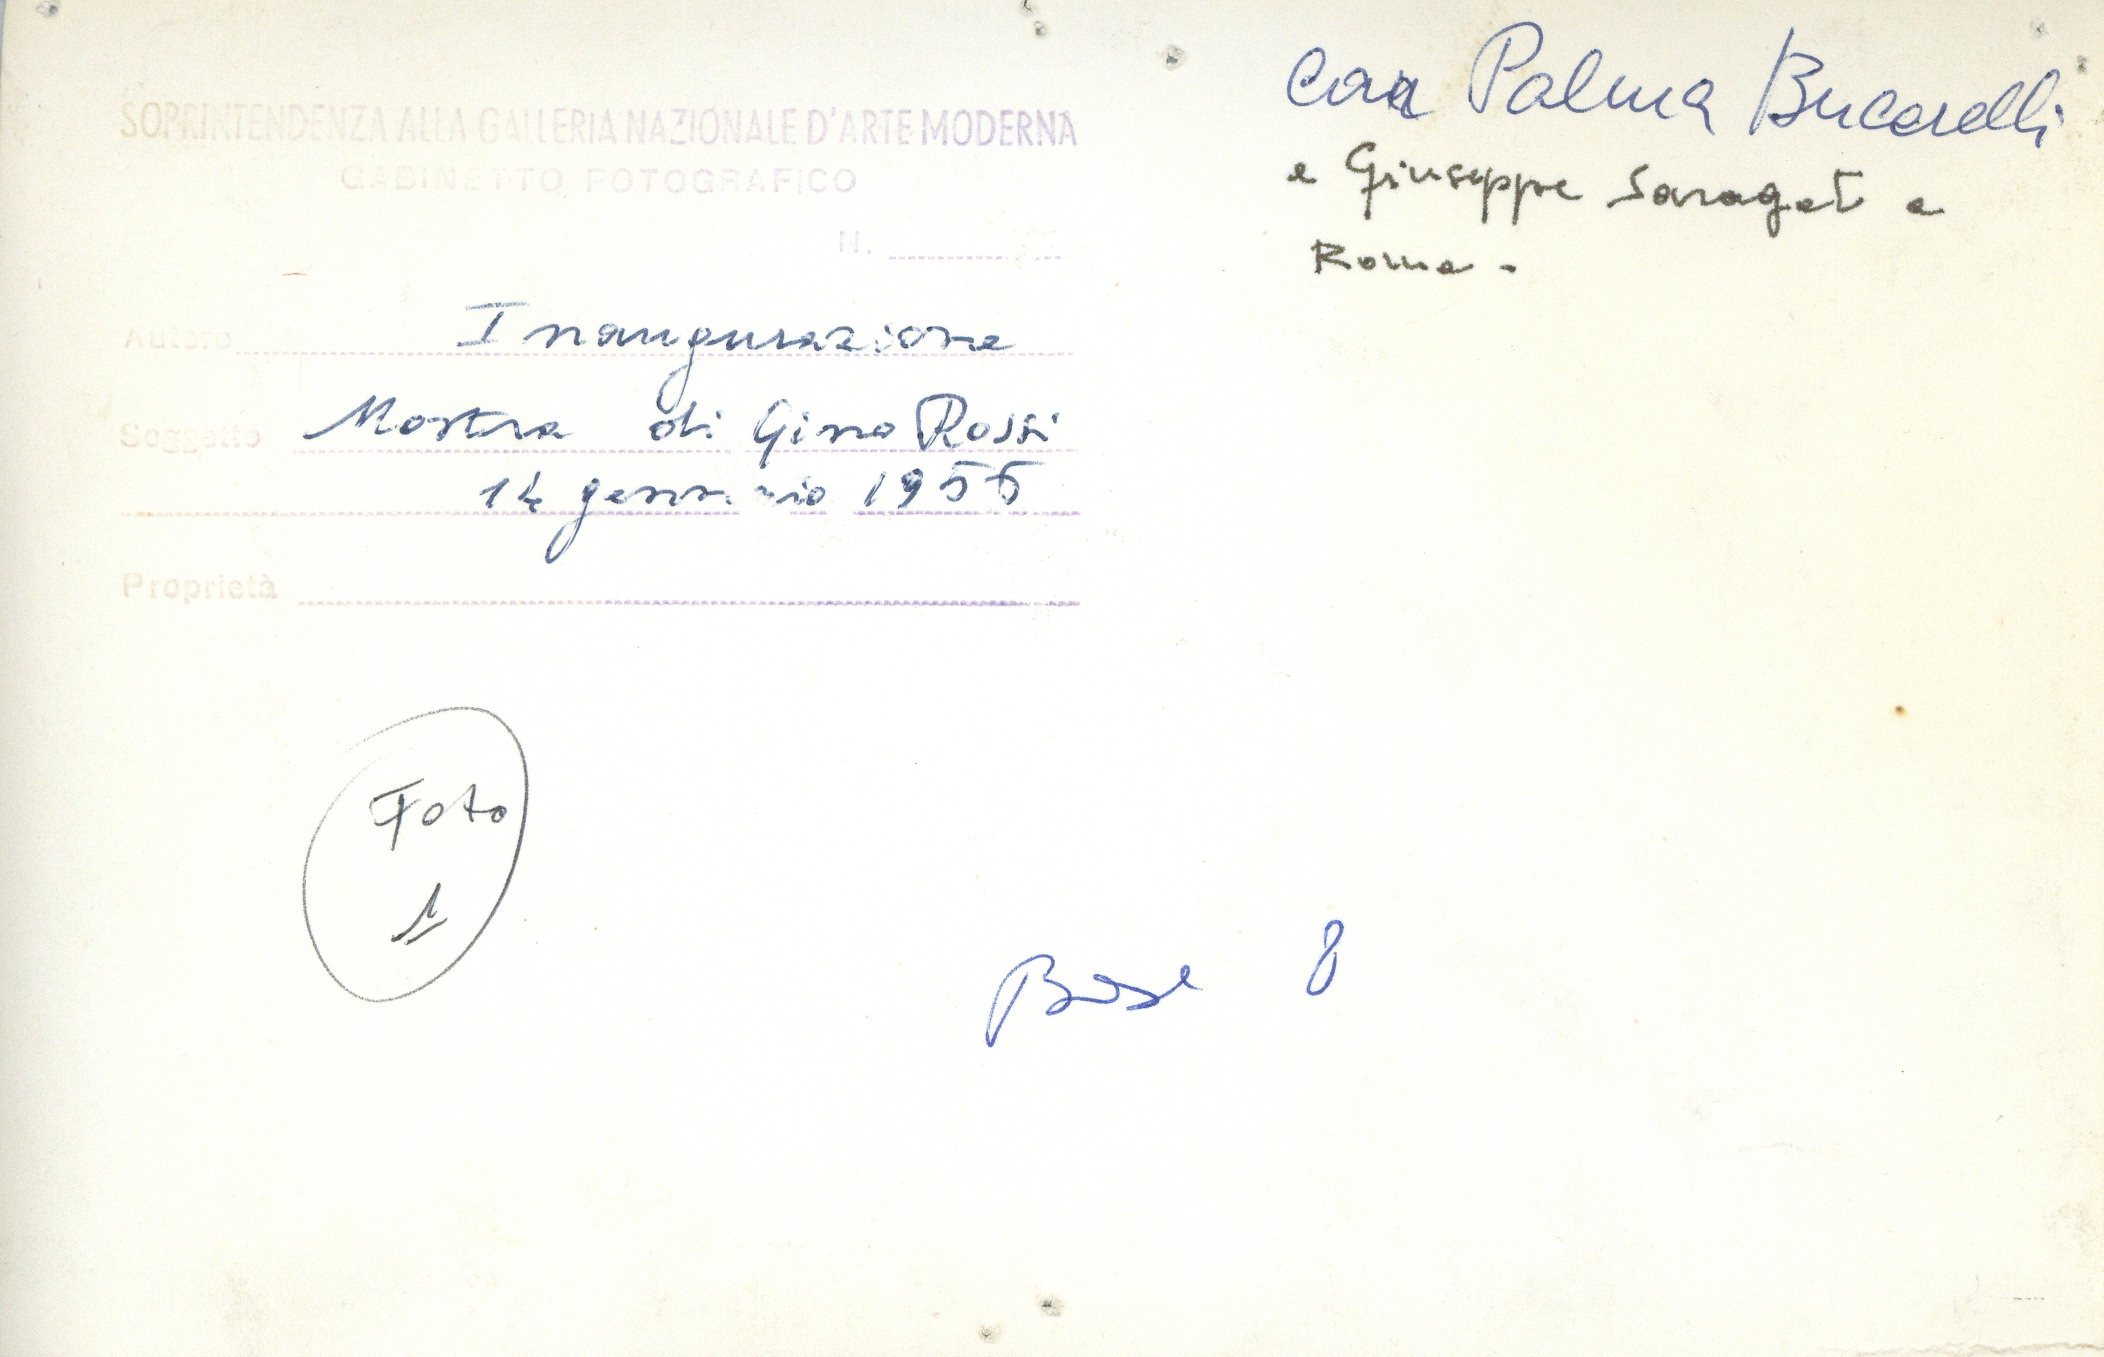 SOPRINTENDENZA ALLA GALLERIA NAZIONALE D'ARTE MODERNA
GABINETTO FOTOGRAFICO
N.
Autore Inaugurazione
Soggetto Mostra di Gino Rossi
14 gennaio 1955
Proprietà
con Palma Bucarelli
e Giuseppe Saragat a
Roma -
Foto
1
8